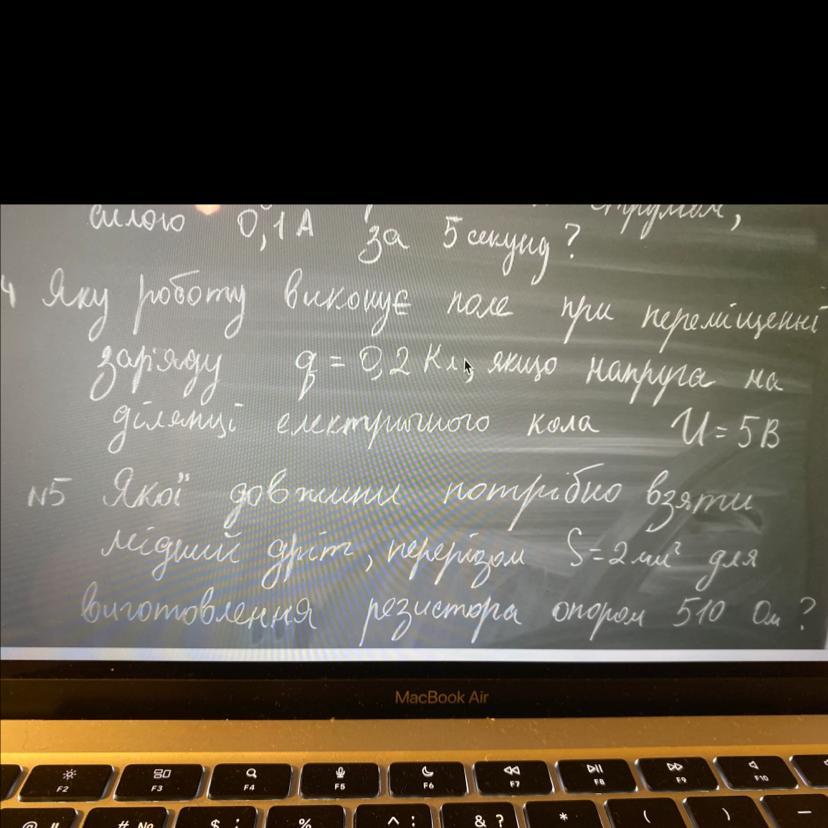 силою 0,1 А струмом,
за 5 секунд?
4 Яку роботу виконує поле при переміщенні
заряду q = 0,2 Кл, якщо напруга на
ділянці електричного кола U = 5 В
№5 Якої довжини потрібно взяти
мідний дріт, перерізом S = 2 мм² для
виготовлення резистора опором 510 Ом?
MacBook Air
F2 F3 F4 F5 F6 F7 F8 F9 F10
@ " # № $ ; % ^ : & ? * ( ) —